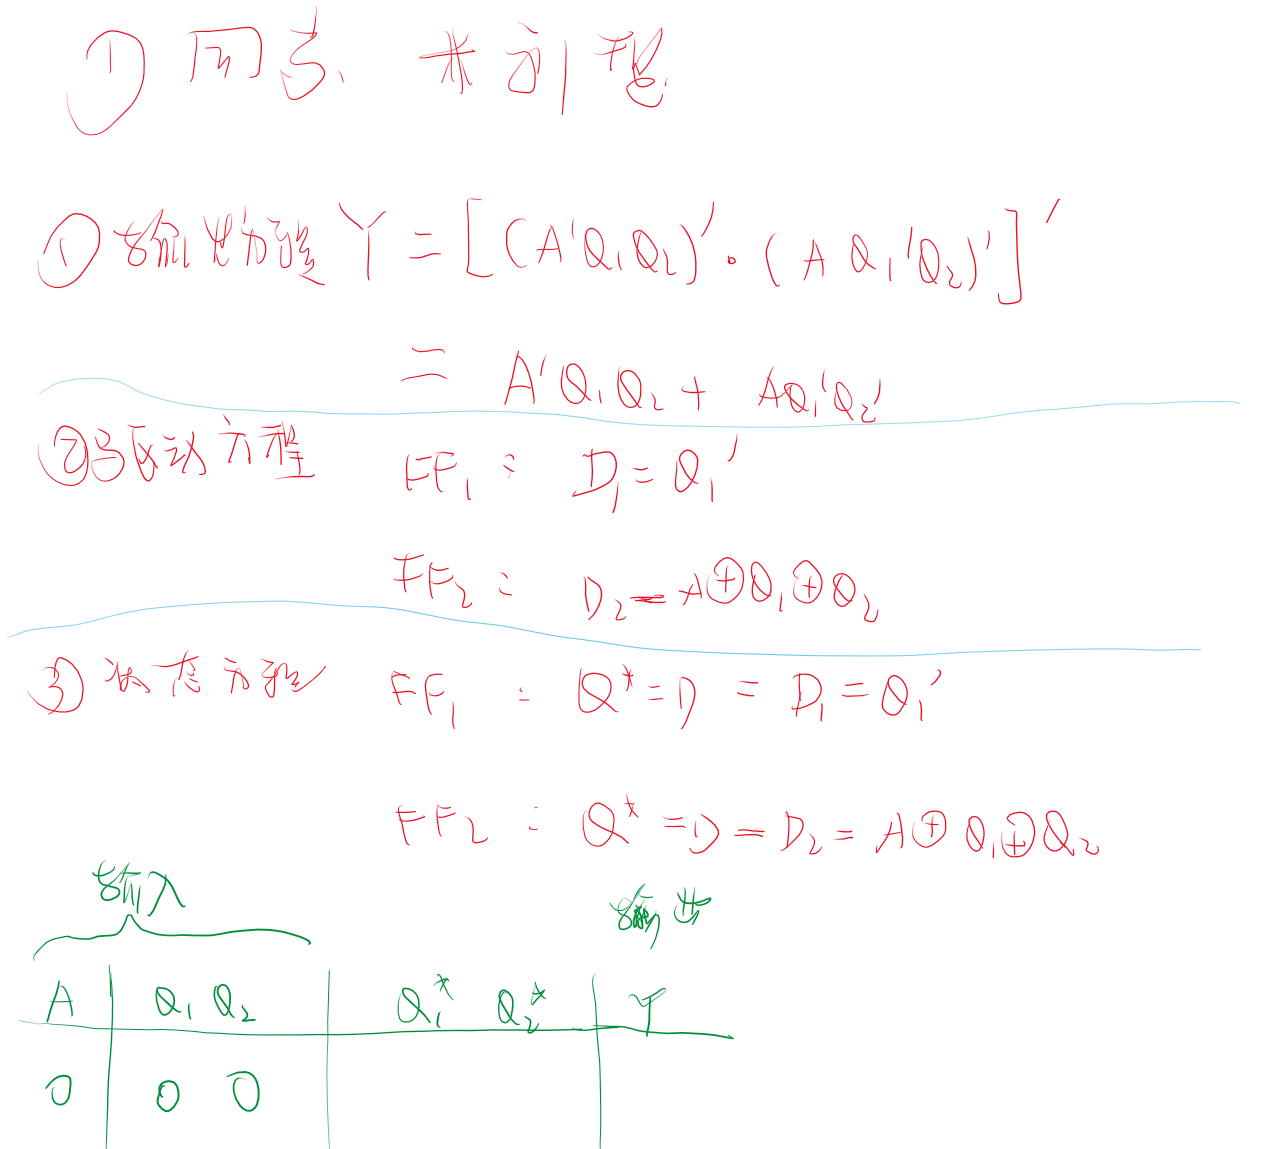 ① 同步、米利型
① 输出方程 Y = [(A'Q₁Q₂)' · (AQ₁'Q₂')']'
= A'Q₁Q₂ + AQ₁'Q₂'
② 驱动方程 FF₁ : D₁ = Q₁'
FF₂ : D₂ = A⊕Q₁⊕Q₂
③ 状态方程 FF₁ : Q* = D = D₁ = Q₁'
FF₂ : Q* = D = D₂ = A⊕Q₁⊕Q₂
输入 输出
A Q₁ Q₂ Q₁* Q₂* Y
0 0 0